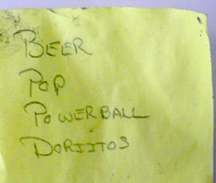 BEER
POP
POWERBALL
DORIITOS